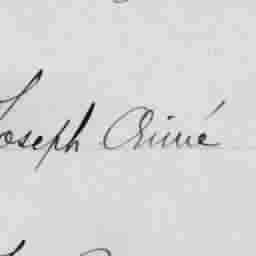 Joseph Aimé